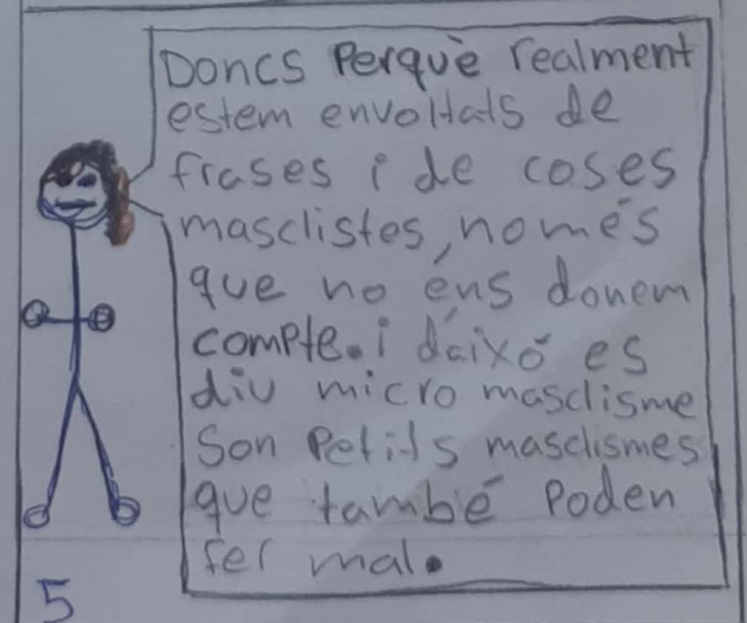 Doncs Perquè realment
estem envoltats de
frases i de coses
masclistes, només
que no éns donem
compte. i d'aixó es
diu micro masclisme
Son Petits masclismes
que també Poden
fer mal.
5